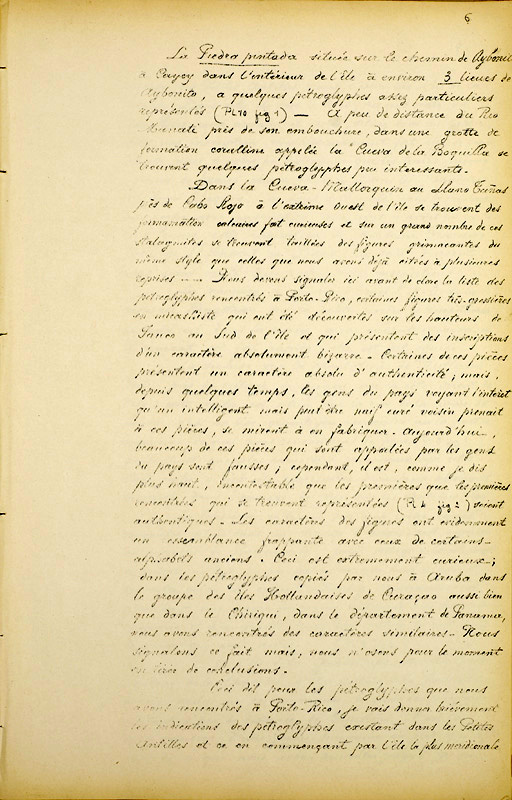 6
La Piedra pintada située sur le chemin de Aybonito
à Cayey dans l'intérieur de l'île à environ 3 lieues de
Aybonito, a quelques pétroglyphes assez particuliers
représentés (Pl 10 fig 1) — A peu de distance du Rio
près de son embouchure, dans une grotte de
formation coralline appelée la Cueva de la Boquilla se
trouvent quelques pétroglyphes peu intéressants.
Dans la Cueva-Mallorquin au Llano
près de Cabo Rojo à l'extrême Ouest de l'île se trouvent des
formation calcaires fort curieuses et sur un grand nombre de ces
stalagmites se trouvent taillées des figures grimaçantes du
même style que celles que nous avons déjà citées à plusieures
reprises — Nous devons signaler ici avant de clore la liste des
pétroglyphes rencontrés à Porto-Rico, certaines figures très-grossières
en qui ont été découvertes sur les hauteurs de
au Sud de l'île et qui présentent des inscriptions
d'un caractère absolument bizarre - Certaines de ces pièces
présentent un caractère absolu d'authenticité; mais,
depuis quelques temps, les gens du pays voyant l'intérêt
qu'un intelligent mais peut être naïf curé voisin prenait
à ces pièces, se mirent à en fabriquer. Aujourd'hui,
beaucoup de ces pièces qui sont apportées par les gens
du pays sont fausses; cependant, il est, comme je dis
plus haut, incontestable que les premières que les premières
rencontrées qui se trouvent représentées (Pl fig 2) soient
authentiques. Les caractères des figures ont évidemment
un ressemblance frappante avec ceux de certains
alphabets anciens. Ceci est extrêmement curieux;
dans les pétroglyphes copiés par nous à Aruba dans
le groupe des îles Hollandaises de Curaçao aussi bien
que dans le Chiriqui, dans le département de Panama,
nous avons rencontrés des caractères similaires - Nous
signalons ce fait mais, nous n'osons pour le moment
en tirer de conclusions.
Ceci dit pour les pétroglyphes que nous
avons rencontrés à Porto-Rico, je vais donner brièvement
les indications des pétroglyphes existant dans les Petites
Antilles et ce en commençant par l'île la plus méridionale